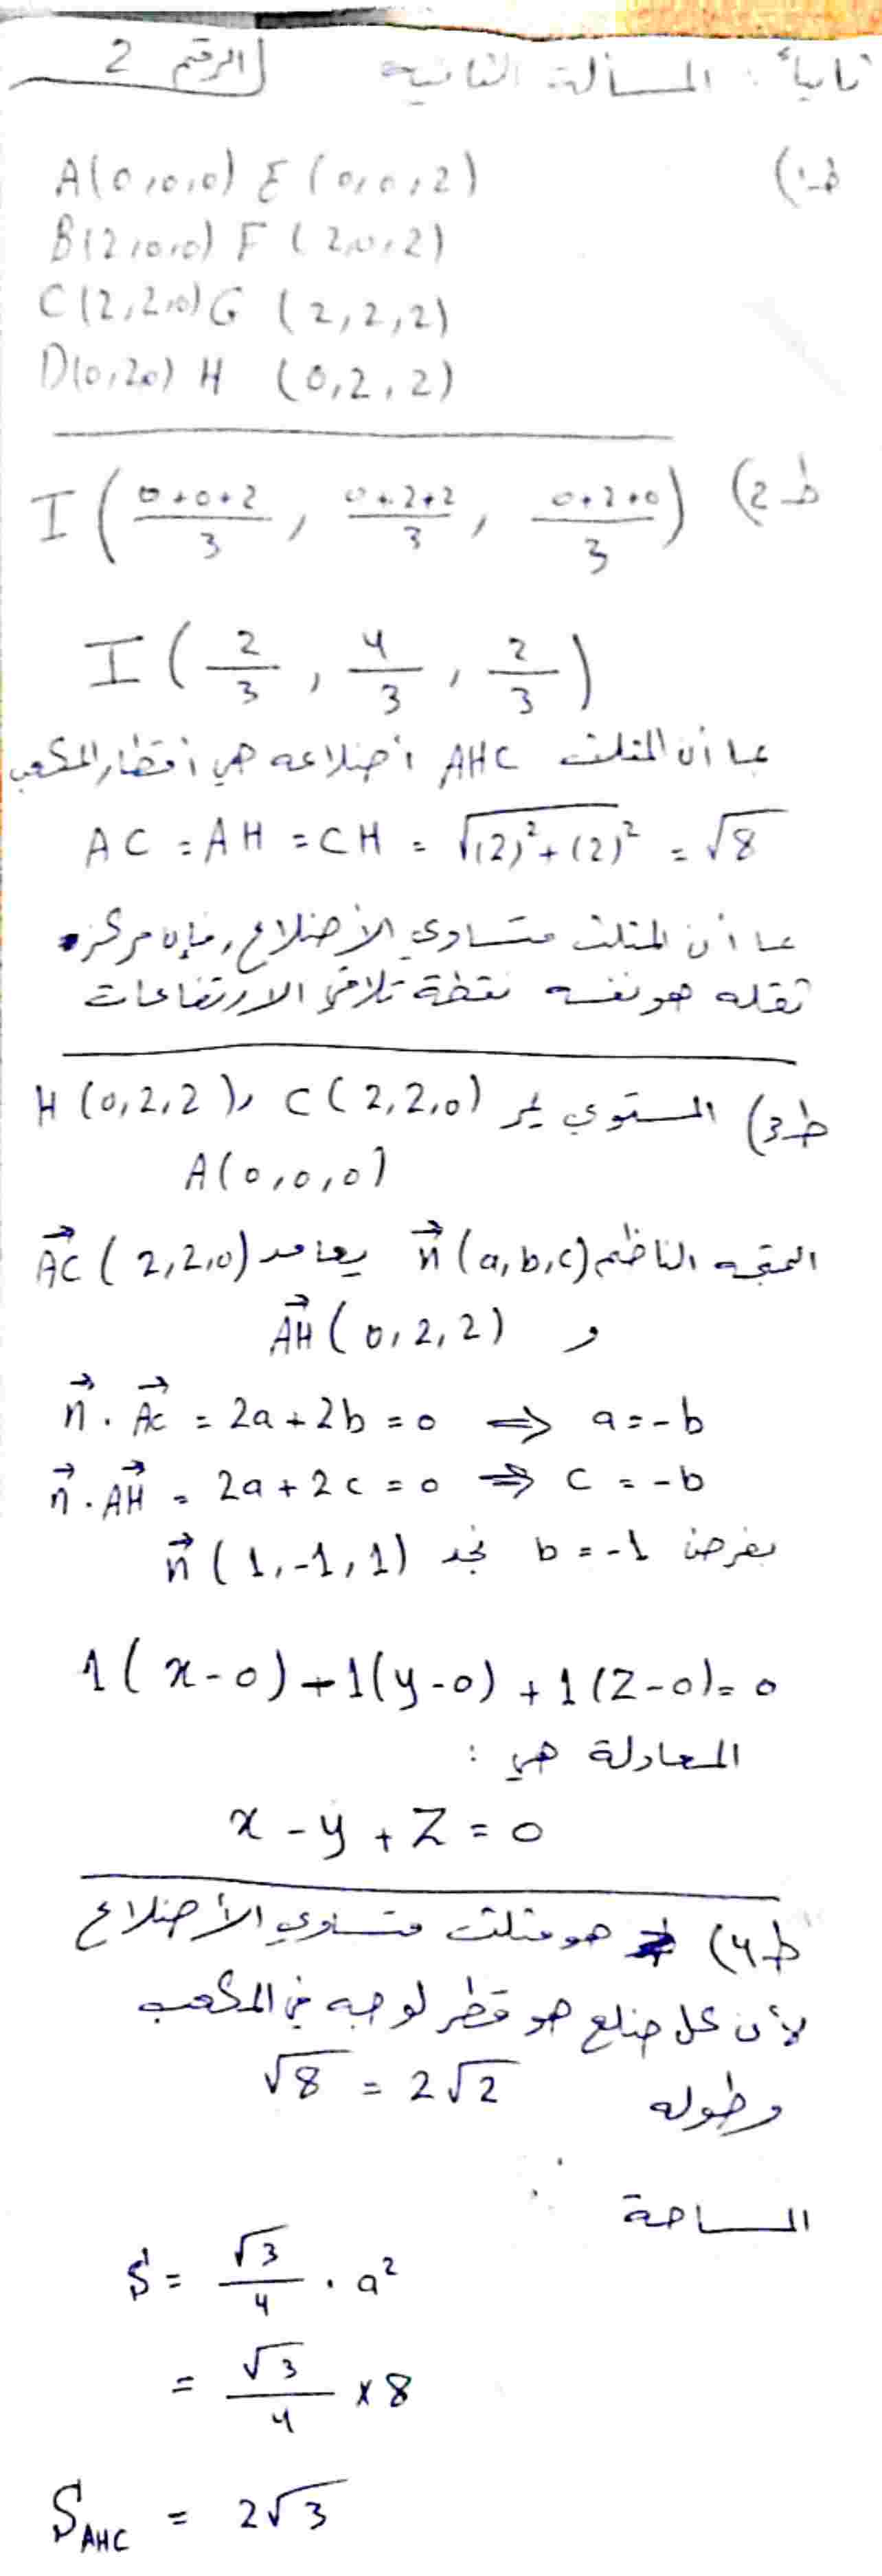 ثانياً: المسألة الثانية الرقم 2
ط1) A(0,0,0) E(0,0,2)
B(2,0,0) F(2,0,2)
C(2,2,0) G(2,2,2)
D(0,2,0) H(0,2,2)
ط2) I((0+0+2)/3, (0+2+2)/3, (0+2+0)/3)
I(2/3, 4/3, 2/3)
بما أن المثلث AHC أضلاعه هي أقطار المكعب
AC = AH = CH = √((2)²+(2)²) = √8
بما أن المثلث متساوي الأضلاع، فإن مركز
ثقله هو نفسه نقطة تلاقي الارتفاعات
ط3) المستوي يمر C(2,2,0) و H(0,2,2)
A(0,0,0)
المتجه الناظم n⃗(a,b,c) يعامد AC⃗(2,2,0)
و AH⃗(0,2,2)
n⃗ . AC⃗ = 2a + 2b = 0 ⇒ a = -b
n⃗ . AH⃗ = 2a + 2c = 0 ⇒ c = -b
بفرض b = -1 نجد n⃗(1,-1,1)
1(x-0) + 1(y-0) + 1(z-0) = 0
المعادلة هي :
x - y + z = 0
ط4) هو مثلث متساوي الأضلاع
لأن كل ضلع هو قطر لوجه في المكعب
وطوله √8 = 2√2
المساحة
S = √3/4 . a²
= √3/4 × 8
S_AHC = 2√3